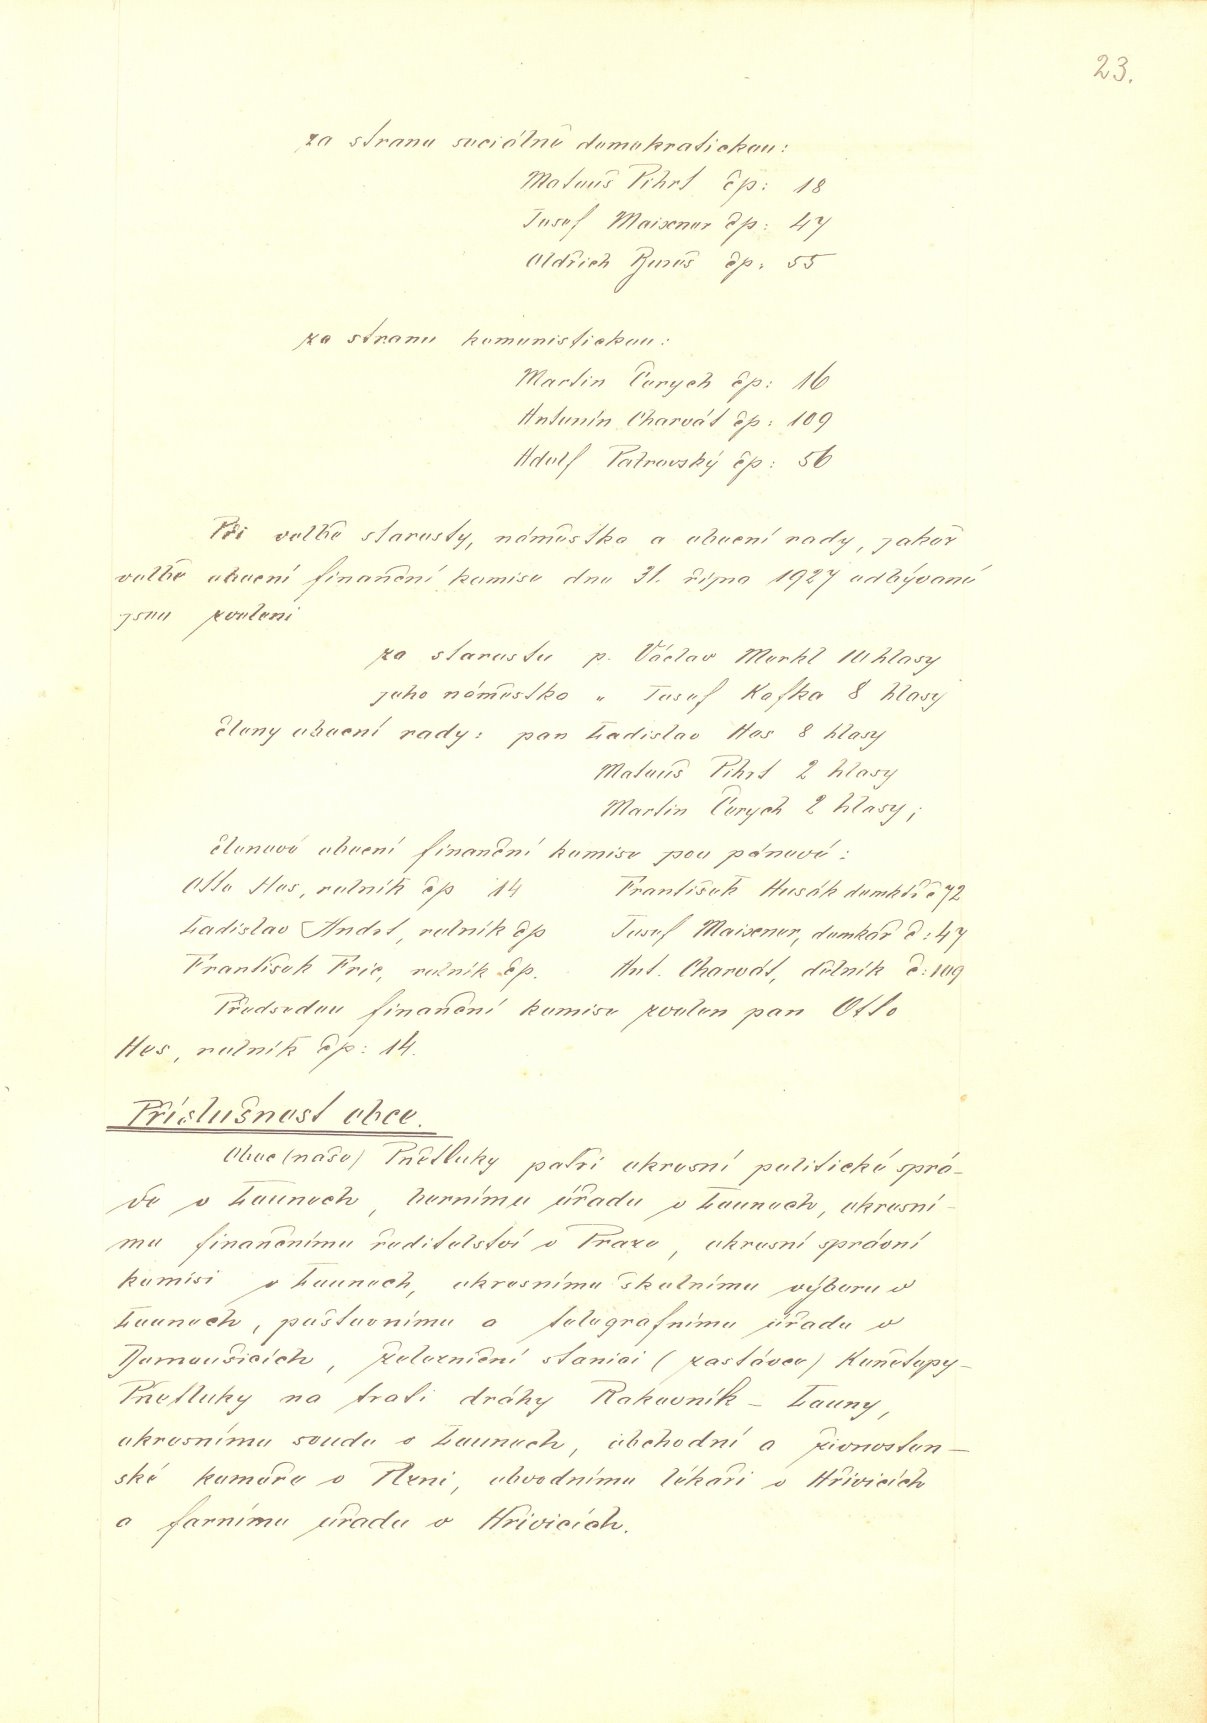 23.
za stranu sociálně demokratickou:
Matouš Pihrt čp: 18
Josef Maixner čp: 47
Oldřich Bureš čp: 55
za stranu komunistickou:
Martin Čorych čp: 16
Antonín Charvát čp: 109
Adolf Patrovský čp: 56
Při volbě starosty, náměstka a obecní rady, jakož
volbě obecní finanční komise dne 31. října 1927 odbývané
jsou zvoleni
za starostu p. Václav Markl 10 hlasy
jeho náměstka „ Josef Kafka 8 hlasy
členy obecní rady: pan Ladislav Hos 8 hlasy
Matouš Pihrt 2 hlasy
Martin Čorych 2 hlasy;
členové obecní finanční komise jsou pánové:
Otto Hos, rolník čp 14 František Husák domkř č 72
Ladislav Andrt, rolník čp Josef Maixner, domkář č: 47
František Fric, rolník čp. Ant. Charvát, dělník č: 109
Předsedou finanční komise zvolen pan Otto
Hos, rolník čp: 14.
Příslušnost obce.
Obec (naše) Pnětluky patří okresní politické sprá-
vě v Lounech, bernímu úřadu v Lounech, okresní-
mu finančnímu ředitelství v Praze, okresní správní
komisi v Lounech, okresnímu školnímu výboru v
Lounech, poštovnímu a telegrafnímu úřadu v
Domoušicích, železniční stanici (zastávce) Konětopy-
Pnětluky na trati dráhy Rakovník - Louny,
okresnímu soudu v Lounech, obchodní a živnosten-
ské komoře v Plzni, obvodnímu lékaři v Hřivicích
a farnímu úřadu v Hřivicích.